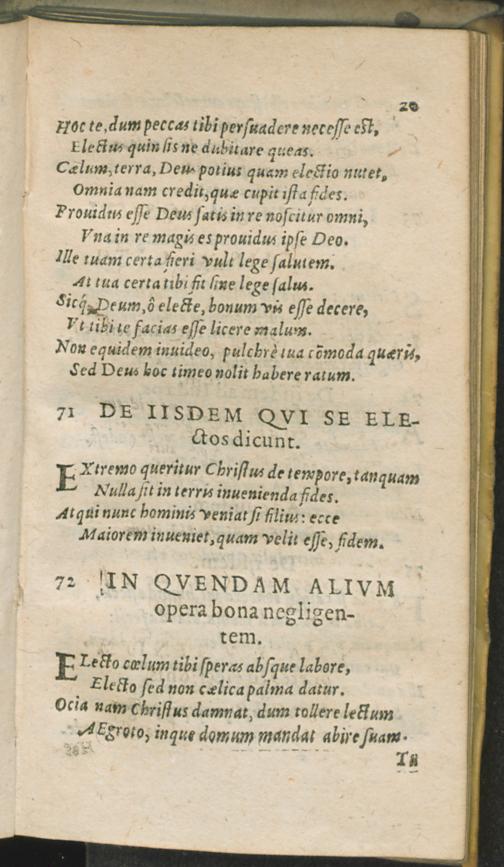 20
Hoc te, dum peccas tibi persuadere necesse est,
Electus quin sis ne dubitare queas.
Cælum, terra, Deus potius quam electio nutet,
Omnia nam credit, quæ cupit ista fides.
Prouidus esse Deus satis in re noscitur omni,
Vna in re magis es prouidus ipse Deo.
Ille tuam certa fieri vult lege salutem.
At tua certa tibi fit sine lege salus.
Sicq́; Deum, ô electe, bonum vis esse decere,
Vt tibi te facias esse licere malum.
Non equidem inuideo, pulchrè tua cōmoda quæris,
Sed Deus hoc timeo nolit habere ratum.
71 DE IISDEM QVI SE ELE-
ctos dicunt.
EXtremo queritur Christus de tempore, tanquam
Nulla sit in terris inuenienda fides.
Atqui nunc hominis veniat si filius: ecce
Maiorem inueniet, quam velit esse, fidem.
72 IN QVENDAM ALIVM
opera bona negligen-
tem.
ELecto cœlum tibi speras absque labore,
Electo sed non cælica palma datur.
Ocia nam Christus damnat, dum tollere lectum
AEgroto, inque domum mandat abire suam.